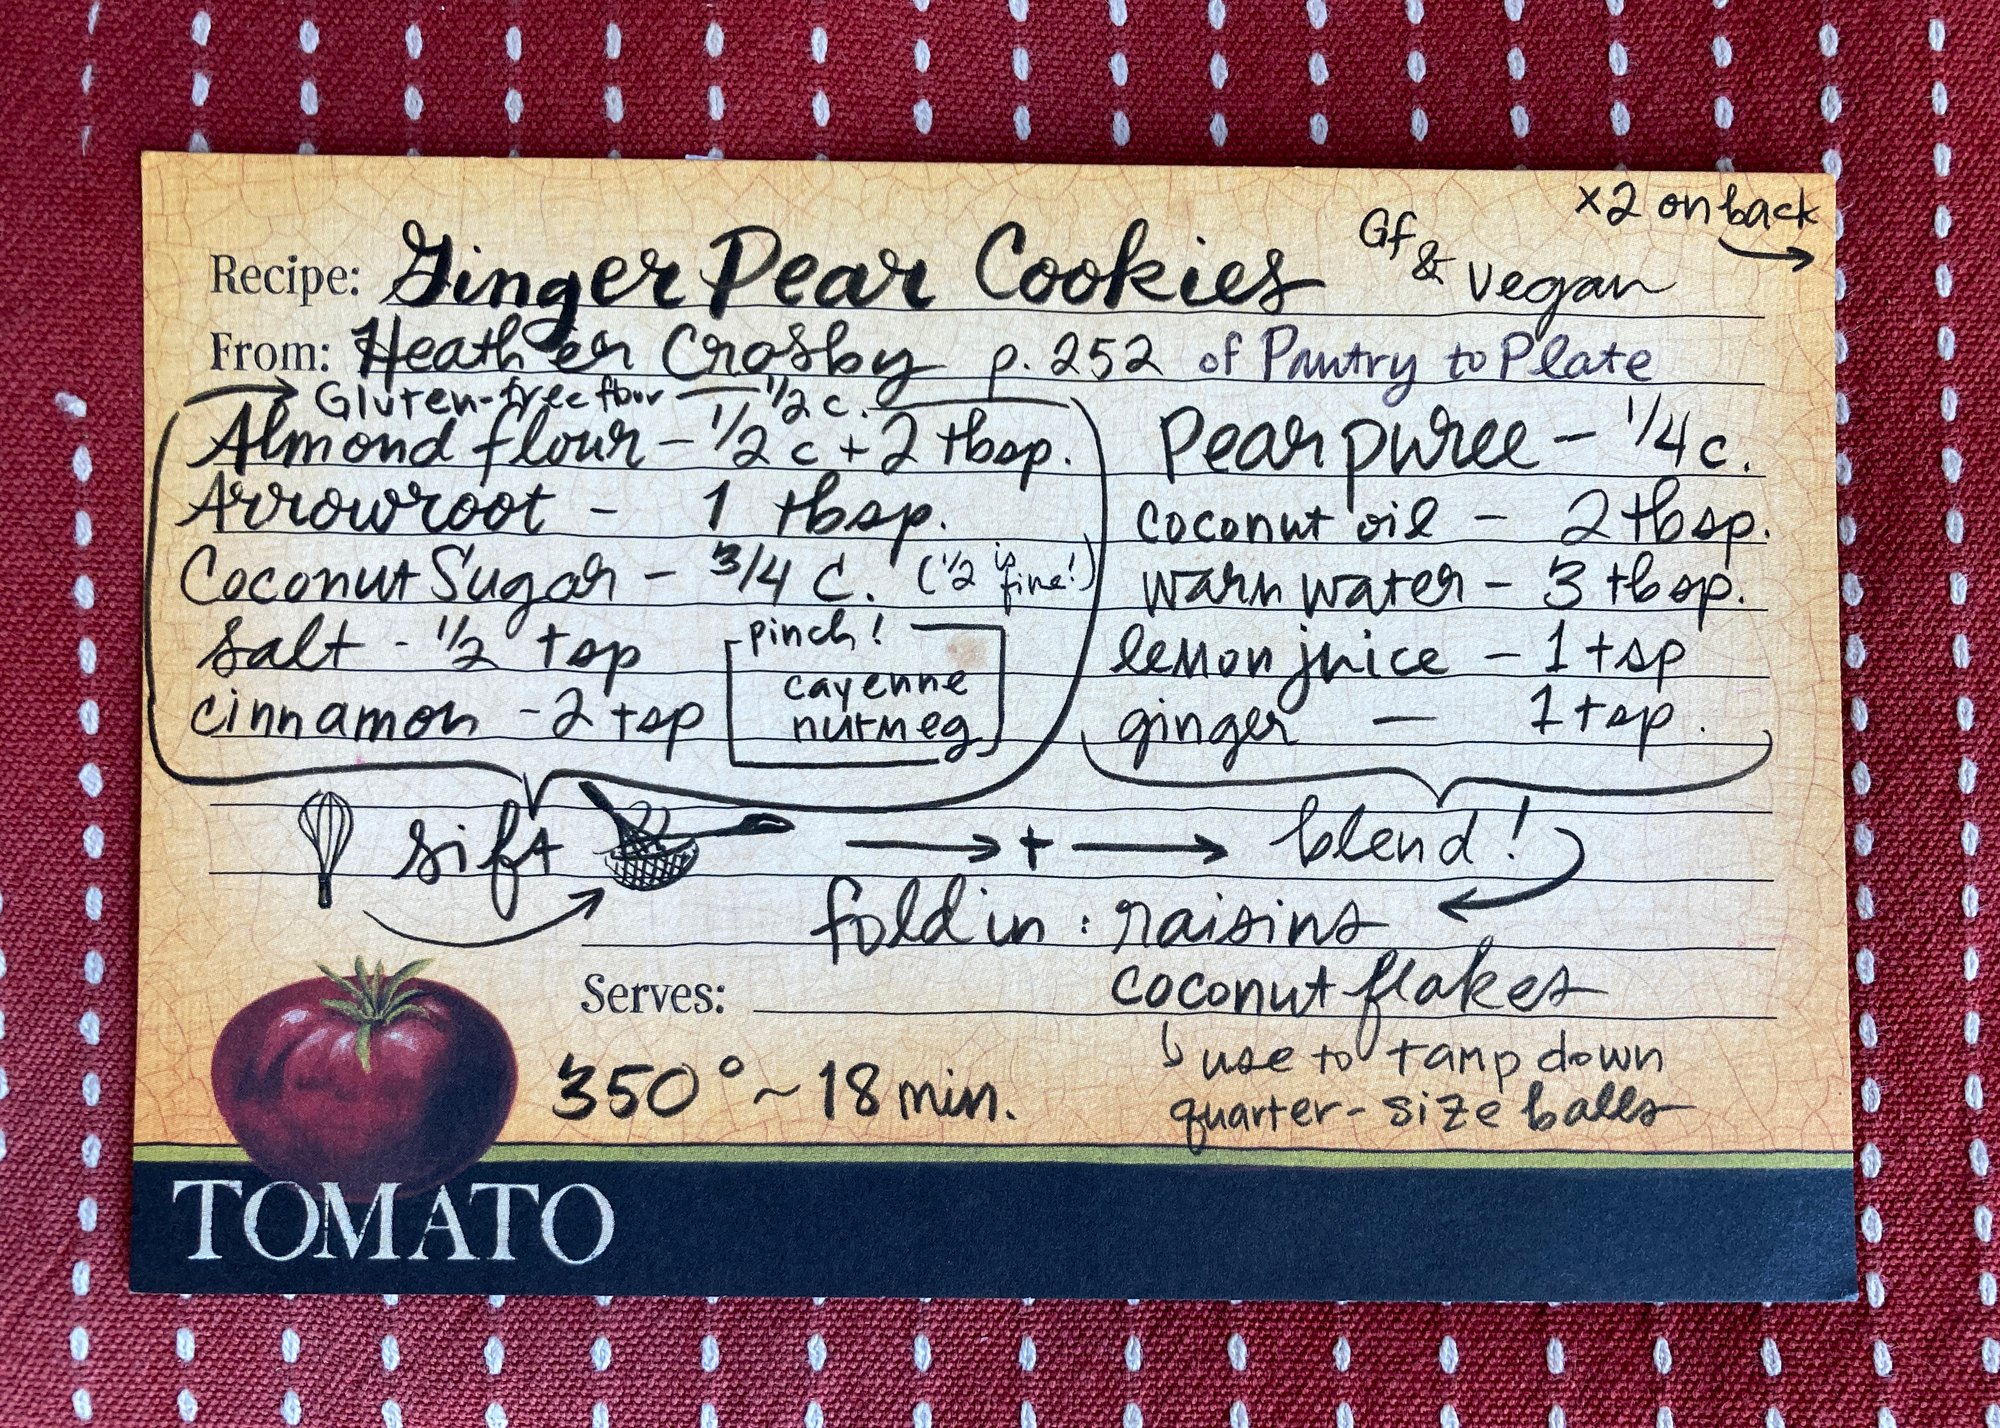 x2 on back
Recipe: Ginger Pear Cookies Gf & Vegan
From: Heather Crosby p. 252 of Pantry to Plate
Gluten-free flour — 1/2 c.
Almond flour - 1/2 c + 2 tbsp.
Arrowroot - 1 tbsp.
Coconut Sugar - 3/4 C. (1/2 is fine!)
Salt - 1/2 tsp
cinnamon - 2 tsp
pinch!
cayenne
nutmeg
Pear puree - 1/4 c.
coconut oil - 2 tbsp.
warm water - 3 tbsp.
lemon juice - 1 tsp
ginger — 1 tsp.
sift → + → blend!
fold in: raisins
coconut flakes
use to tamp down
quarter-size balls
Serves:
350° ~ 18 min.
TOMATO